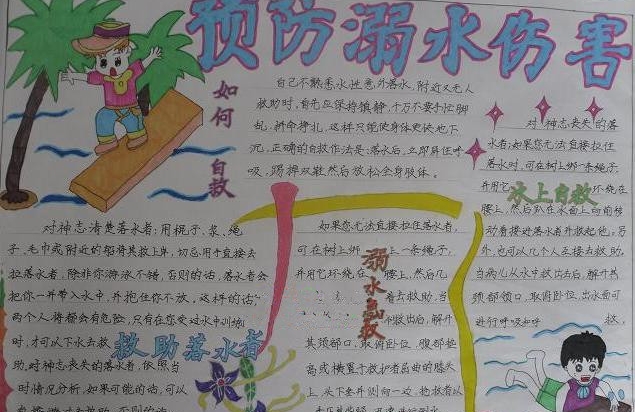 预防溺水伤害
如何自救
自己不熟悉水性意外落水,附近又无人
救助时,首先应保持镇静,千万不要手忙脚
乱,拼命挣扎,这样只能使身体更快地下
沉。正确的自救作法是:落水后,立即屏住呼
吸,踢掉双鞋然后放松全身肢体。
对神志清楚落水者:用棍子、浆、绳
子、毛巾或附近的船将其救上岸,切忌用手直接去
拉落水者,除非你游泳不错,否则的话,落水者会
把你一并带入水中,并抱住你不放,这样的话
两个人将都会有危险,只有在您受过水中训练
时,才可以下水去救
助,对神志丧失的落水者,依照当
时情况分析,如果可能的话,可以
救助落水者
如果您无法直接拉住落水者,
可在树上绑一条绳子,
并用它环绕在腰上,然后
着去救助,当
救出后,解开
其颈部口,取俯卧位,腹部垫
高或横置于救护者屈曲的膝头
溺水急救
对神志丧失的落
水者:如果您无法直接拉住
落水时,可在树上绑一条绳子,
并用它环绕在
腰上,然后趴在水面上向前移
动身接进落水者并救起他,另
外,也可以几个人互接去救助,
当病儿从水中救出去后,解开其
颈部领口,取俯卧位,出水面可
进行呼吸
水上自救